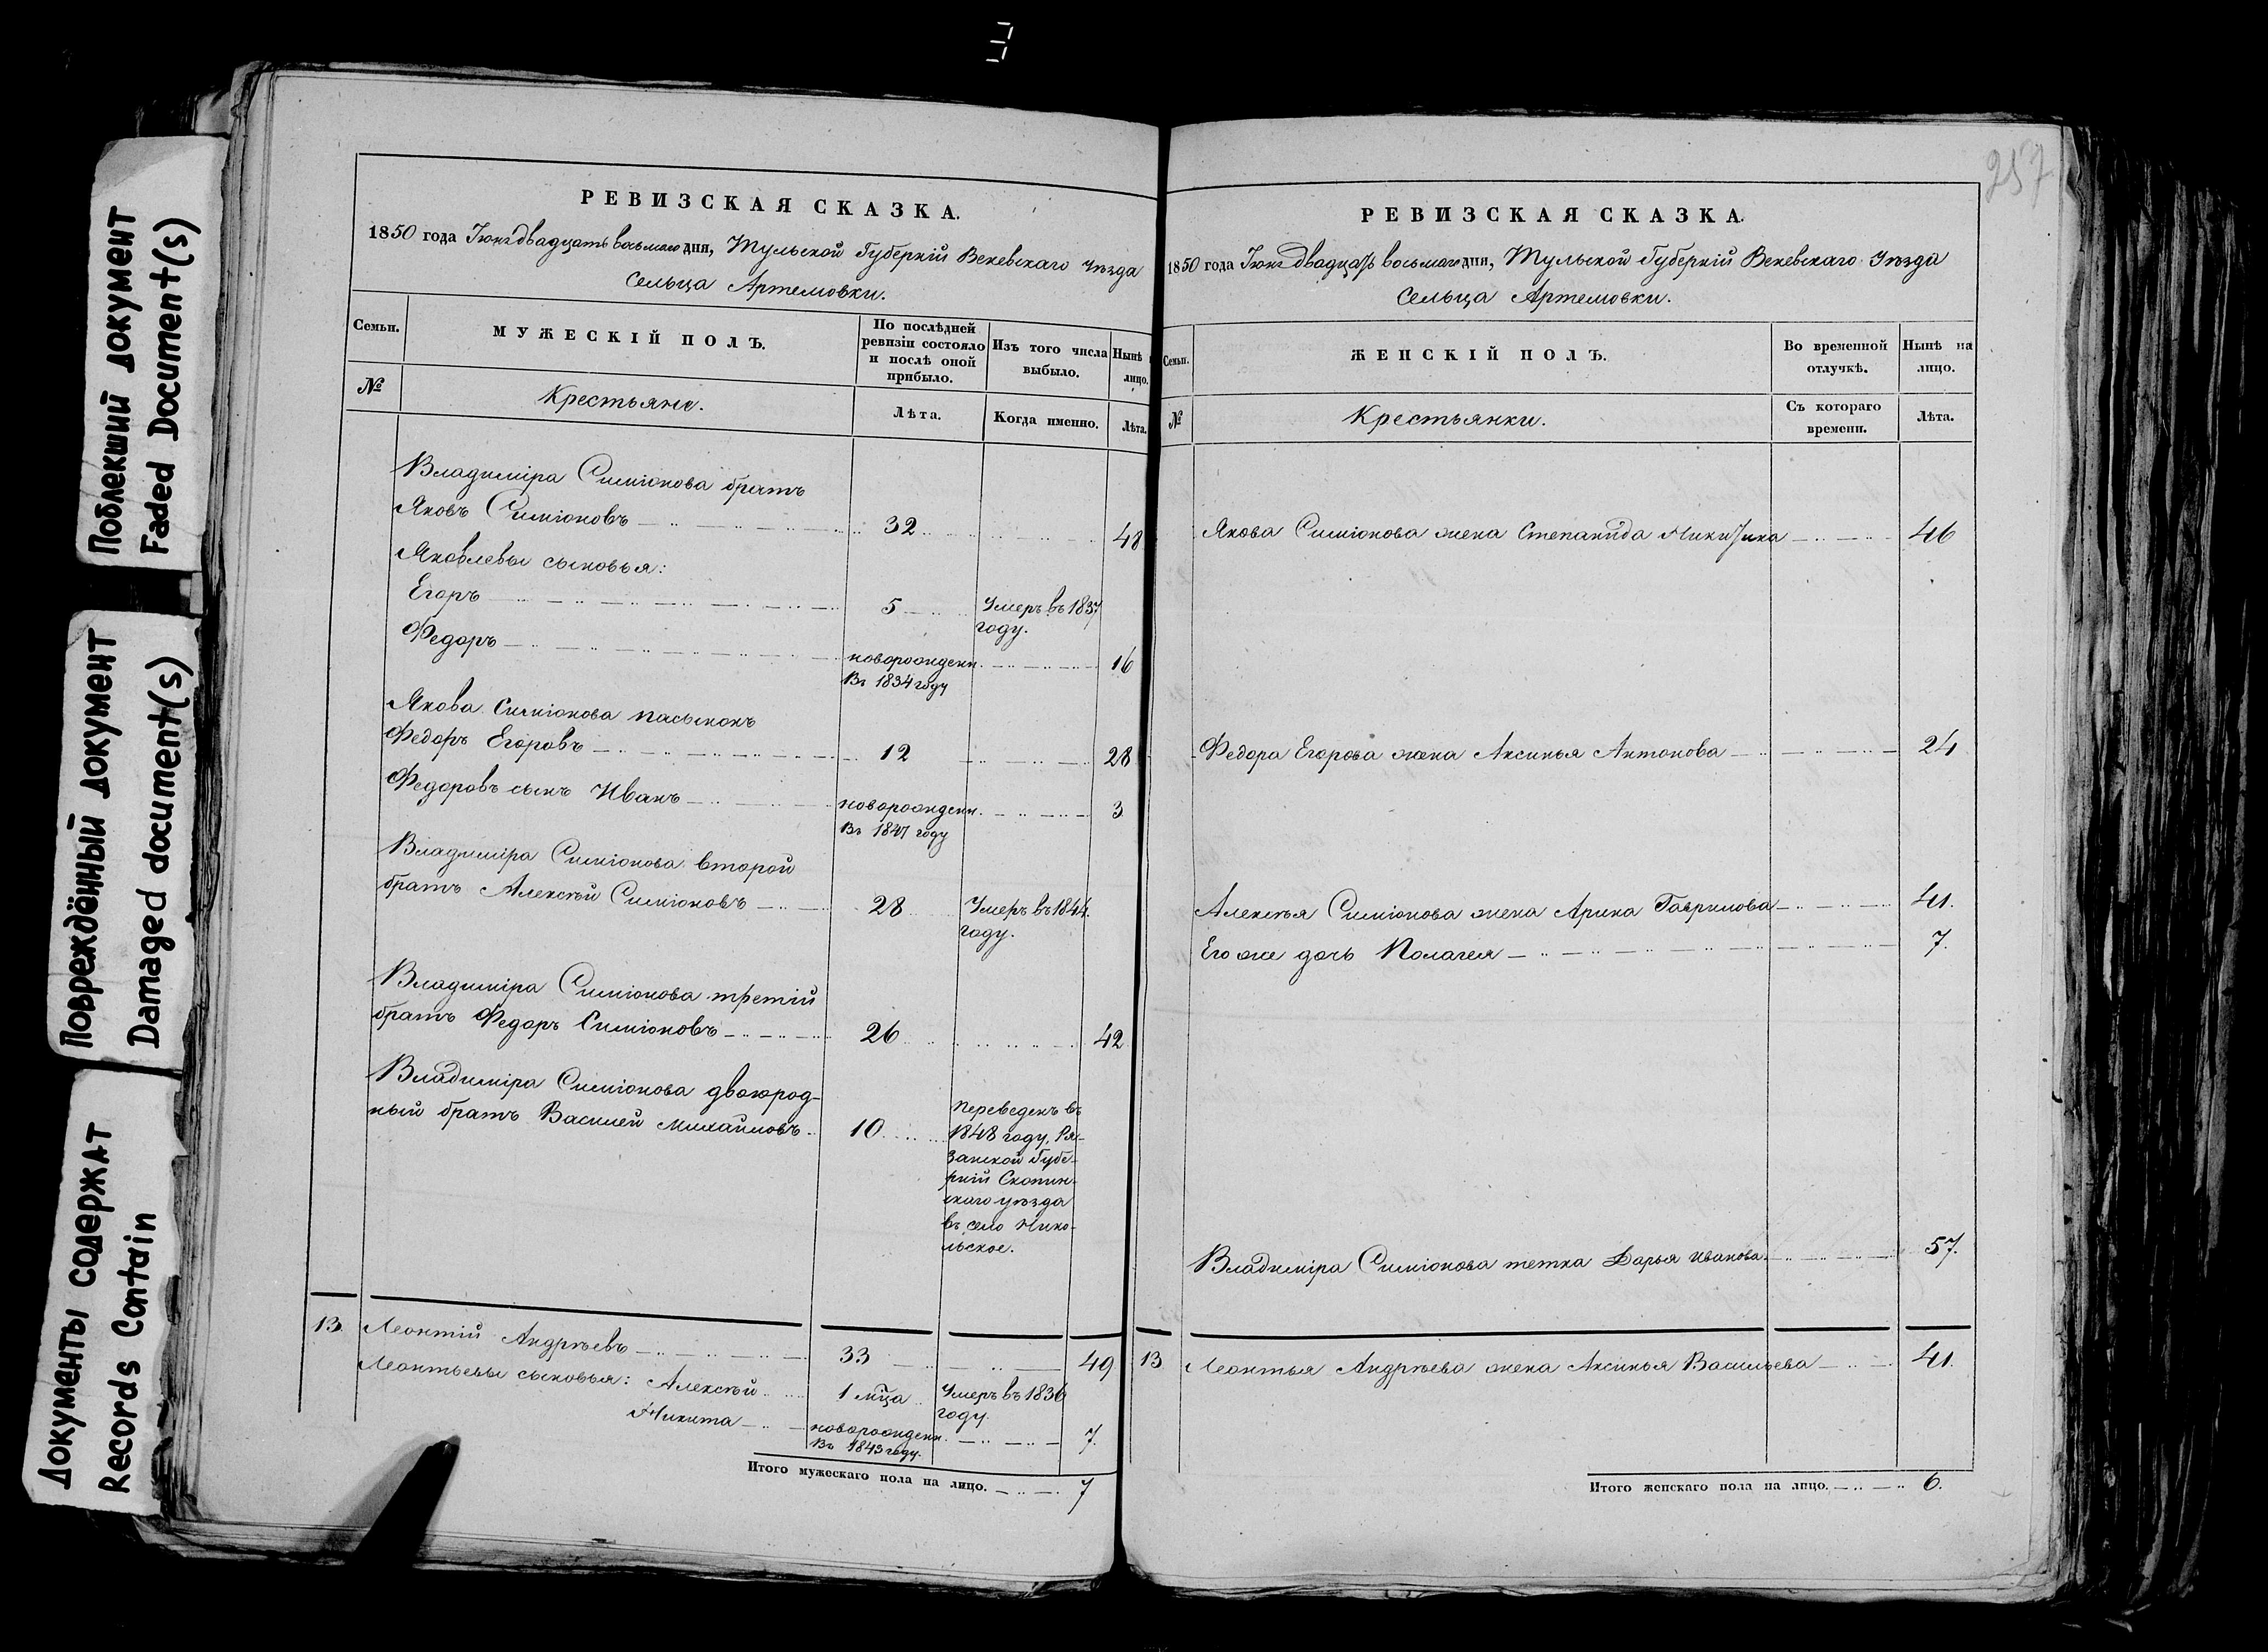 Поблекший документ
Faded Document(s)
Повреждённый документ
Damaged document(s)
Документы содержат
Records Contain
РЕВИЗСКАЯ СКАЗКА.
1850 года Іюня двадцать восьмаго дня, Тульской Губерніи Веневскаго Уѣзда
Сельца Артемовки.
Семьи.
МУЖЕСКІЙ ПОЛЪ.
По послѣдней ревизіи состояло и послѣ оной прибыло.
Изъ того числа выбыло.
Нынѣ лицо.
№
Крестьяне.
Лѣта.
Когда именно.
Лѣта.
Владиміра Симіонова братъ
Яковъ Симіоновъ 32 48
Яковлевы сыновья:
Егоръ 5 Умеръ въ 1837 году.
Федоръ новорожденн. въ 1834 году 16
Якова Симіонова пасынокъ
Федоръ Егоровъ 12 28
Федоровъ сынъ Иванъ новорожденн. въ 1847 году 3
Владиміра Симіонова второй
братъ Алексѣй Симіоновъ 28 Умеръ въ 1844 году.
Владиміра Симіонова третій
братъ Федоръ Симіоновъ 26 42
Владиміра Симіонова двоюрод-
ный братъ Василей Михайловъ 10
Переведенъ въ
1848 году, Ря-
занской Губе-
рніи Скопин-
скаго уѣзда
въ село Нико-
льское.
13 Леонтій Андрѣевъ 33 49
Леонтьевы сыновья: Алексѣй 1 мца Умеръ въ 1836 году.
Никита новорожденн. въ 1843 году. 7.
Итого мужескаго пола на лицо. 7
257
РЕВИЗСКАЯ СКАЗКА.
1850 года Іюня двадцать восьмаго дня, Тульской Губерніи Веневскаго Уѣзда
Сельца Артемовки.
Семьи.
ЖЕНСКІЙ ПОЛЪ.
Во временной отлучкѣ.
Нынѣ на лицо.
№
Крестьянки.
Съ котораго времени.
Лѣта.
Якова Симіонова жена Степанида Никитина 46
Федора Егорова жена Аксинья Антонова 24
Алексѣя Симіонова жена Арина Гаврилова 41.
Его же дочь Полагея 7.
Владиміра Симіонова тетка Дарья Иванова 57.
13 Леонтья Андрѣева жена Аксинья Васильева 41.
Итого женскаго пола на лицо. 6.